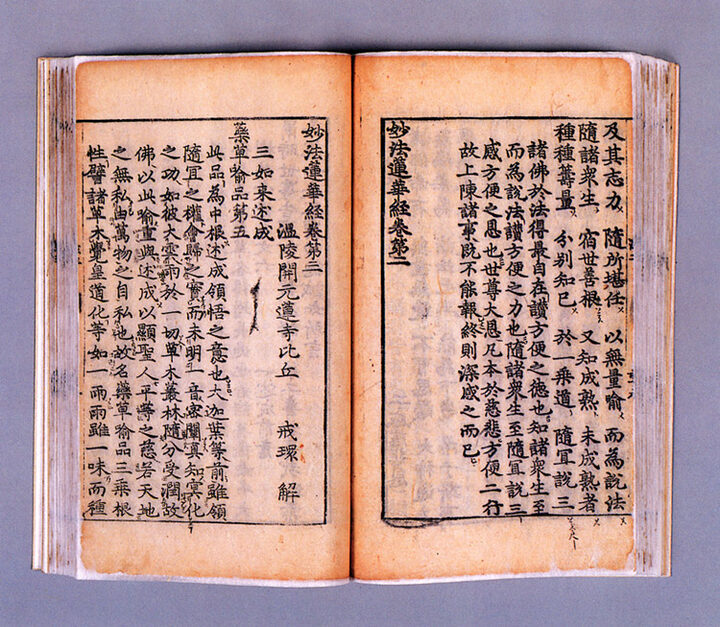 及其志力 隨所堪任 以無量喻 而為說法
隨諸衆生 宿世善根 又知成熟 未成熟者
種種籌量 分別知已 於一乗道 隨冝說三
諸佛於法得最自在讃方便之徳也知諸衆生至
而為說法讃方便之力也隨諸衆生至隨冝說三
感方便之恩也世尊大恩凡本於慈悲方便二行
故上陳諸事既不能報終則深感之而已
妙法蓮華經卷第二
妙法蓮華經卷第三
溫陵開元蓮寺比丘 戒環 解
三如来述成
藥草喻品第五
此品為中根述成領悟之意也大迦葉等前雖領
隨冝之權會歸之實而未明一音密闡真知冥化
之功如彼大雲雨於一切草木叢林隨分受潤故
佛以此喻重與述成以顯聖人平等之慈若天地
之無私由萬物之自私也故名藥草喻品三乗根
性譬諸草木覺皇道化等如一雨雨雖一味而種